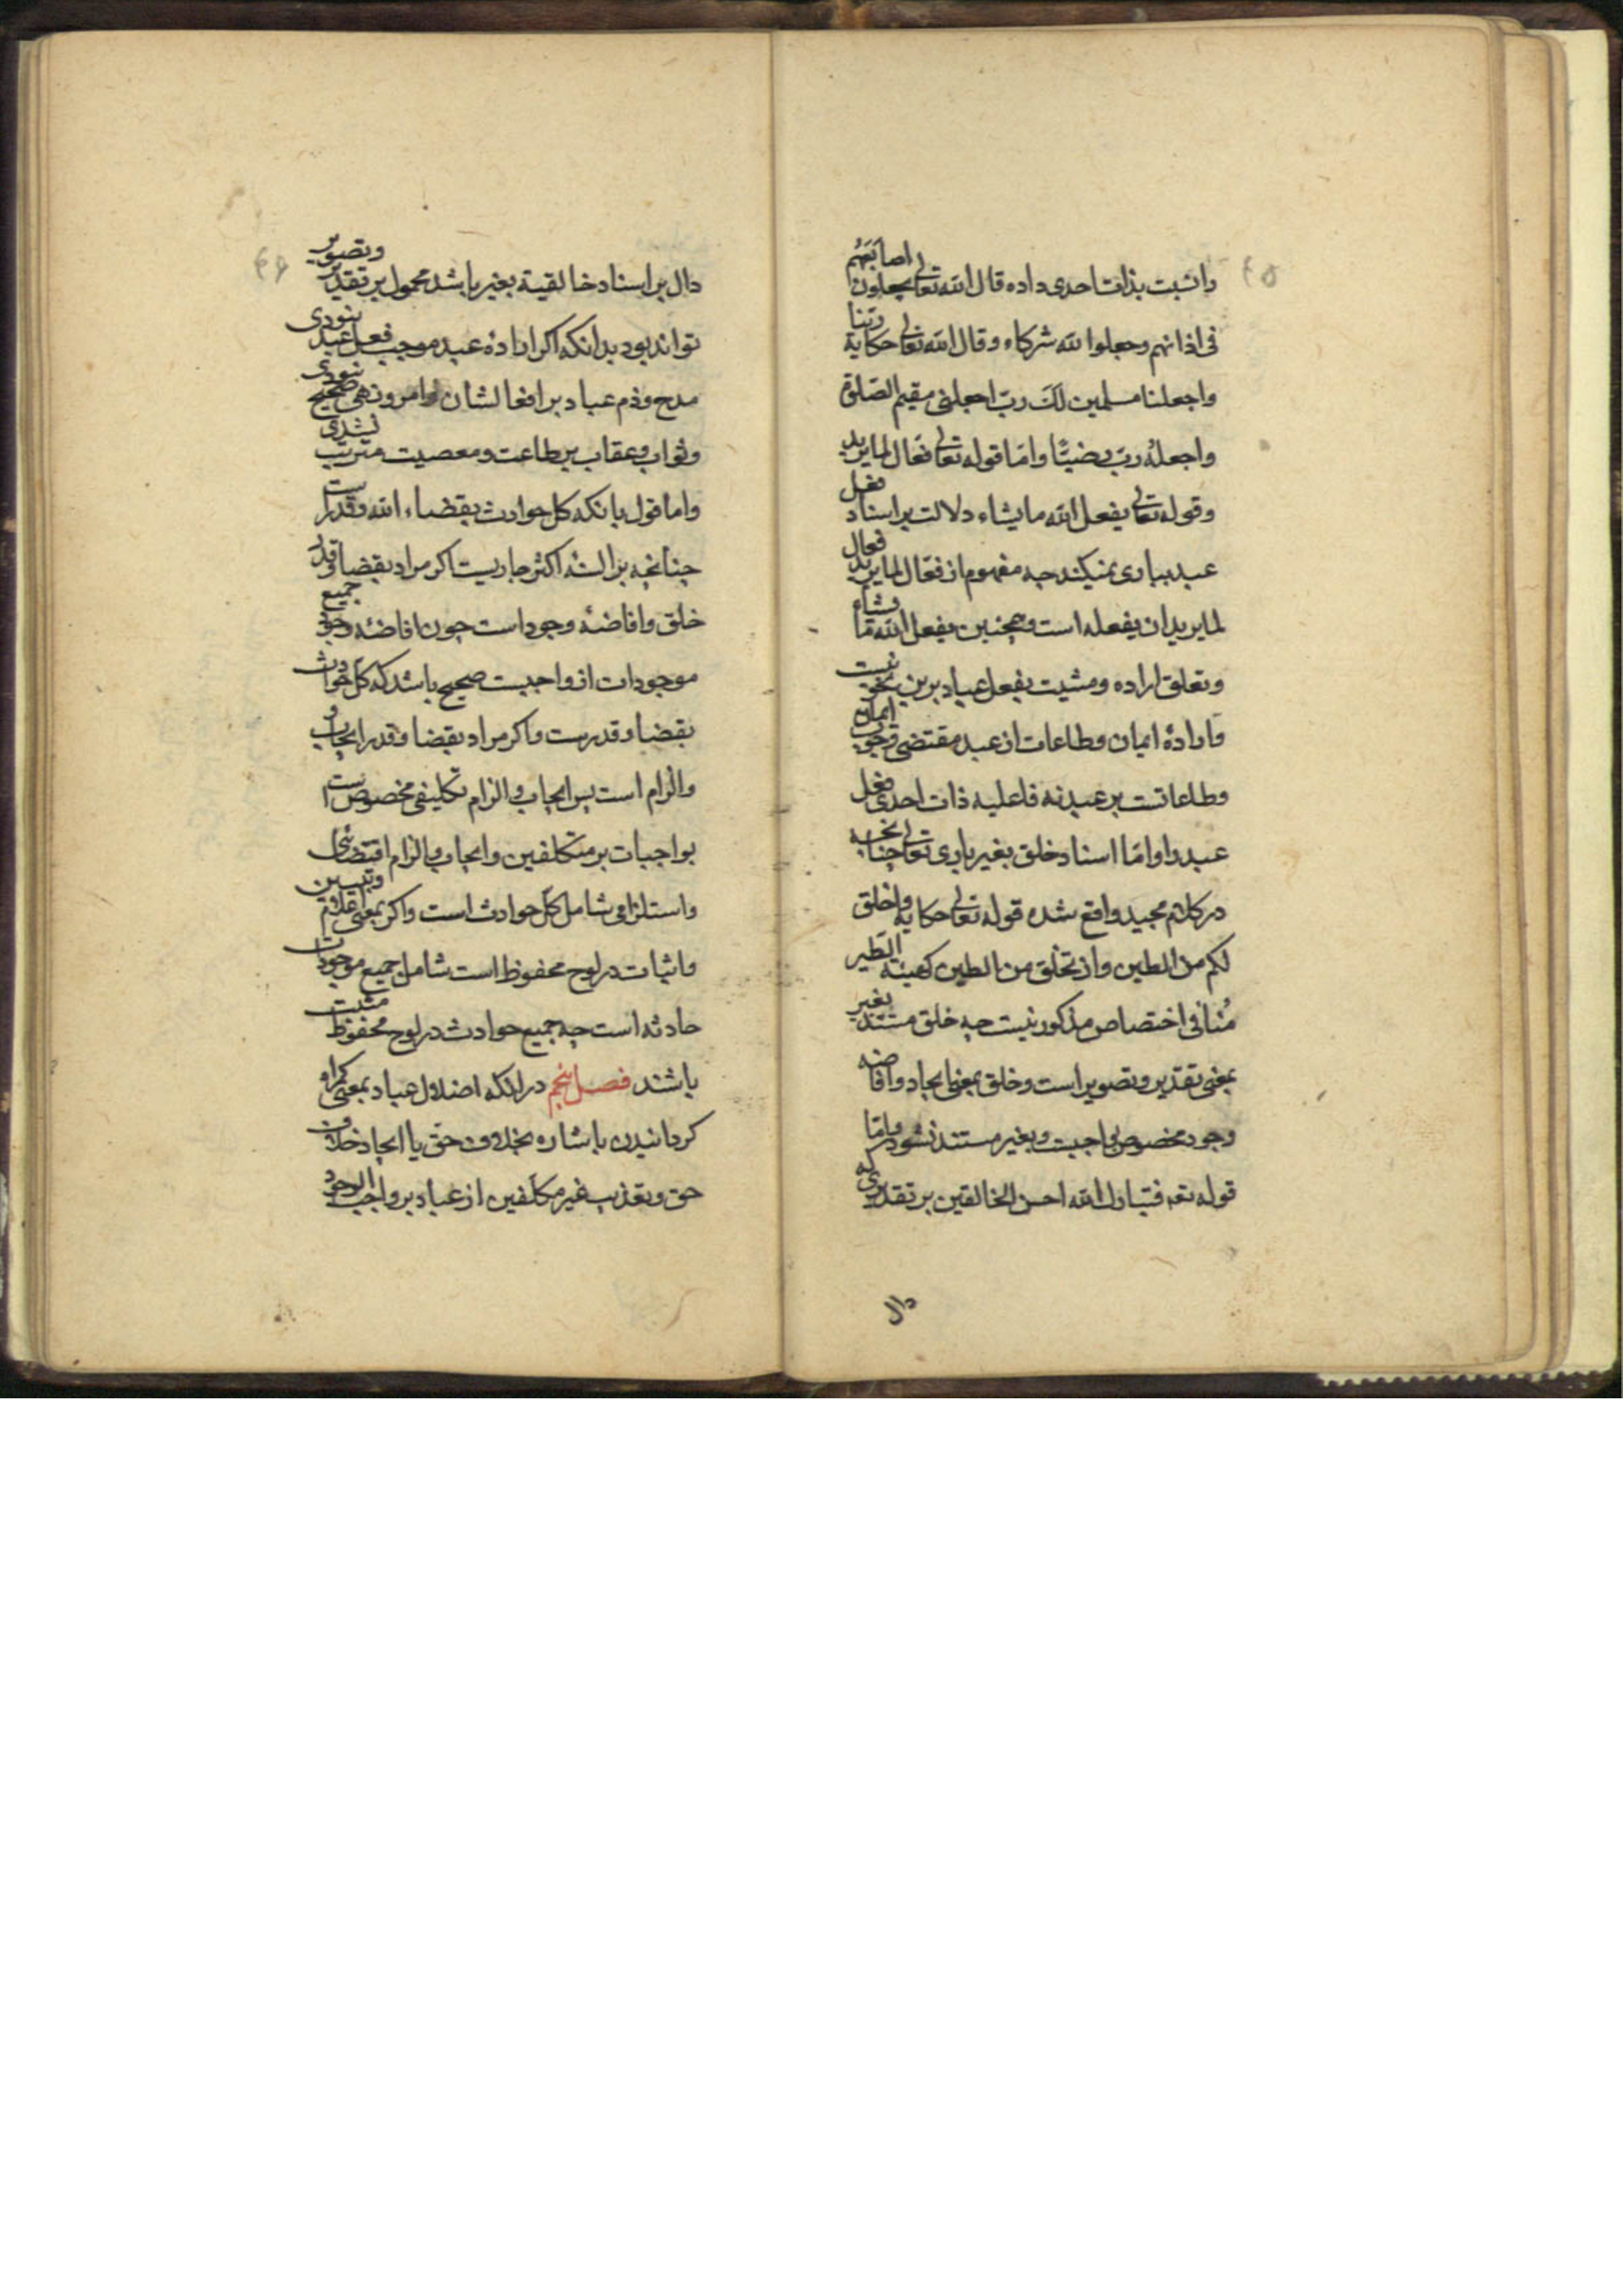 را نسبت بذات احدی داده قال الله تعالی یجعلون اصابعهم
فی اذانهم وجعلوا لله شرکاء وقال الله تعالی حکایة ربنا
واجعلنا مسلمین لک رب اجعلنی مقیم الصلوة
واجعله رب رضیا واما قوله تعالی فعال لما یرید
وقوله تعالی یفعل الله ما یشاء دلالت بر اسناد فعل
عبد بباری نمیکند چه مفهوم از فعال لما یرید فعال
لما یرید ان یفعله است وهمچنین یفعل الله ما یشاء
وتعلق اراده ومشیت بفعل عباد برین نحو نیست
واراده ایمان وطاعات از عبد مقتضی وجوب ایمان
وطاعاتست بر عبد نه فاعلیه ذات احدی فعل
عبد را واما اسناد خلق بغیر باری تعالی چنانچه
در کلام مجید واقع شده قوله تعالی حکایة واخلق
لکم من الطین واذ تخلق من الطین کهیئة الطیر
منافی اختصاص مذکور نیست چه خلق مستند بغیر
بمعنی تقدیر وتصویر است وخلق بمعنی ایجاد وافاضه
وجود مخصوص بواجبست وبغیر مستند نشود واما
قوله تعه فتبارک الله احسن الخالقین بر تقدیری که
دال
دال بر اسناد خالقیة بغیر باشد محمول بر تقدیر وتصویر
تواند بود بدانکه اکر اراده عبد موجب فعل عبد نبودی
مدح وذم عباد بر افعالشان وامر ونهی صحیح نبودی
وثواب وعقاب بر طاعت ومعصیت مترتب نشدی
واما قول بانکه کل حوادث بقضاء الله وقدرست
چنانچه بر السنه اکثر جاریست اکر مراد بقضا وقدر
خلق وافاضه وجود است چون افاضه وجود جمیع
موجودات از واجبست صحیح باشد که کل حوادث
بقضا وقدرست واکر مراد بقضا وقدر ایجاب و
والزام است پس ایجاب والزام تکلیفی مخصوص است
بواجبات بر متکلفین وایجاب والزام اقتضائی
واستلزامی شامل کل حوادث است واکر بمعنی اعلام وتبیین
واثبات در لوح محفوظ است شامل جمیع موجودات
حادثه است چه جمیع حوادث در لوح محفوظ مثبت
باشند فصل پنجم در انکه اضلال عباد بمعنی کمراه
کردانیدن باشاره بخلاف حق یا ایجاد خلاف
حق وتعذیب غیر مکلفین از عباد بر واجب الوجود